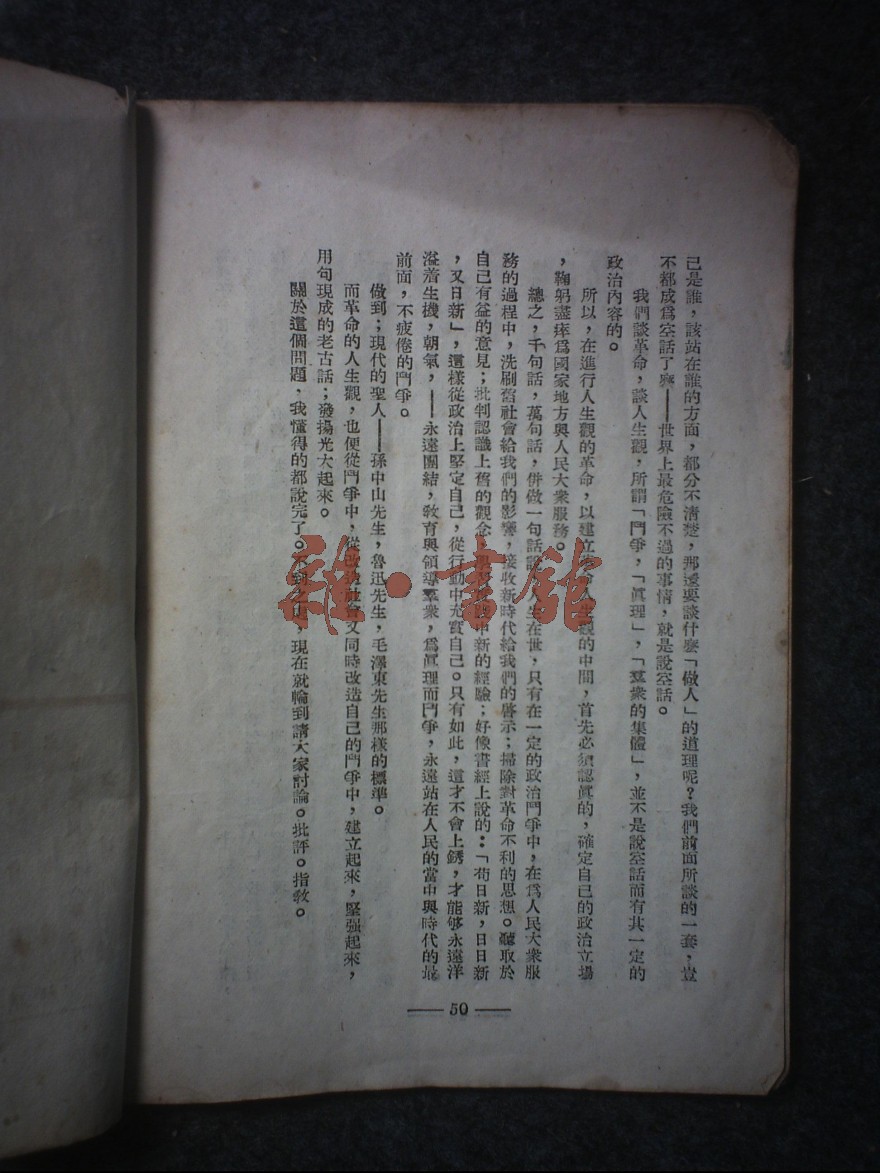 己是誰，該站在誰的方面，都分不清楚，那還要談什麼「做人」的道理呢？我們前面所談的一套，豈
不都成爲空話了麼——世界上最危險不過的事情，就是說空話。
我們談革命，談人生觀，所謂「鬥爭，「眞理」，「羣衆的集體」，並不是說空話而有其一定的
政治內容的。
所以，在進行人生觀的革命，以建立革命人生觀的中間，首先必須認眞的，確定自己的政治立場
，鞠躬盡瘁爲國家地方與人民大衆服務。
總之，千句話，萬句話，併做一句話說，人生在世，只有在一定的政治鬥爭中，在爲人民大衆服
務的過程中，洗刷舊社會給我們的影響，接收新時代給我們的啓示；掃除對革命不利的思想。聽取於
自己有益的意見；批判認識上舊的觀念，中新的經驗；好像書經上說的：「苟日新，日日新
，又日新」，這樣從政治上堅定自己，從行動中充實自己。只有如此，這才不會上銹，才能够永遠洋
溢着生機，朝氣，——永遠團結，敎育與領導羣衆，爲眞理而鬥爭，永遠站在人民的當中與時代的最
前面，不疲倦的鬥爭。
做到；現代的聖人——孫中山先生，魯迅先生，毛澤東先生那樣的標準。
而革命的人生觀，也便從鬥爭中，從改造社會又同時改造自己的鬥爭中，建立起來，堅强起來，
用句現成的老古話；發揚光大起來。
關於這個問題，我懂得的都說完了。不到之處，現在就輪到請大家討論。批評。指敎。
——50——
雜·書館